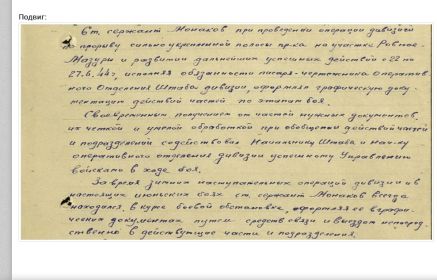 Подвиг:
Ст. сержант Монаков при проведении операции дивизии
по прорыву сильно укрепленной полосы пр-ка на участке Ровное-
Мазуры и развитии дальнейших успешных действий с 22 по
27.6.44г, исполняя обязанности писаря-чертежника Оператив-
ного Отделения Штаба дивизии, оформлял графическую доку-
ментацию действий частей по этапам боя.
Своевременным получением от частей нужных документов,
их четкой и умелой обработкой при обобщении действий частей
и подразделений содействовал Начальнику Штаба и нач-ку
оперативного отделения дивизии успешному Управлению
войсками в ходе боя.
За время зимних наступательных операций дивизии и в
настоящих июньских боях ст. сержант Монаков всегда
находился в курсе боевой обстановки, оформляя ее в графи-
ческих документах путем средств связи и выездом непосред-
ственно в действующие части и подразделения.